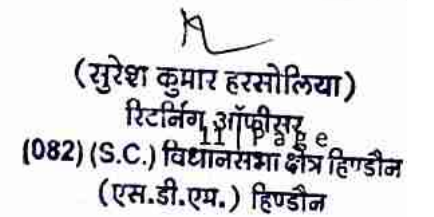 (सुरेश कुमार हरसोलिया)
रिटर्निंग ऑफीसर
11 | P a g e
(082) (S.C.) विधानसभा क्षेत्र हिण्डौन
(एस.डी.एम.) हिण्डौन